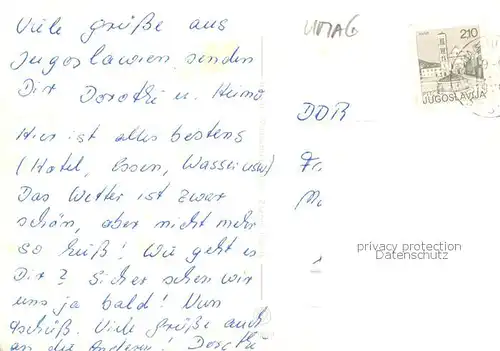 Viele Grüße aus
Jugoslawien senden
Dir Dorothi u. Heino
Hier ist alles bestens
(Hotel, Essen, Wasser usw)
Das Wetter ist zwar
schön, aber nicht mehr
so heiß! Wie geht es
Dir? Sicher sehen wir
uns ja bald! Nun
tschüß. Viele Grüße auch
an die Anderen! Dorothi
UMAG
2.10
JUGOSLAVIJA
DDR
privacy protection
Datenschutz